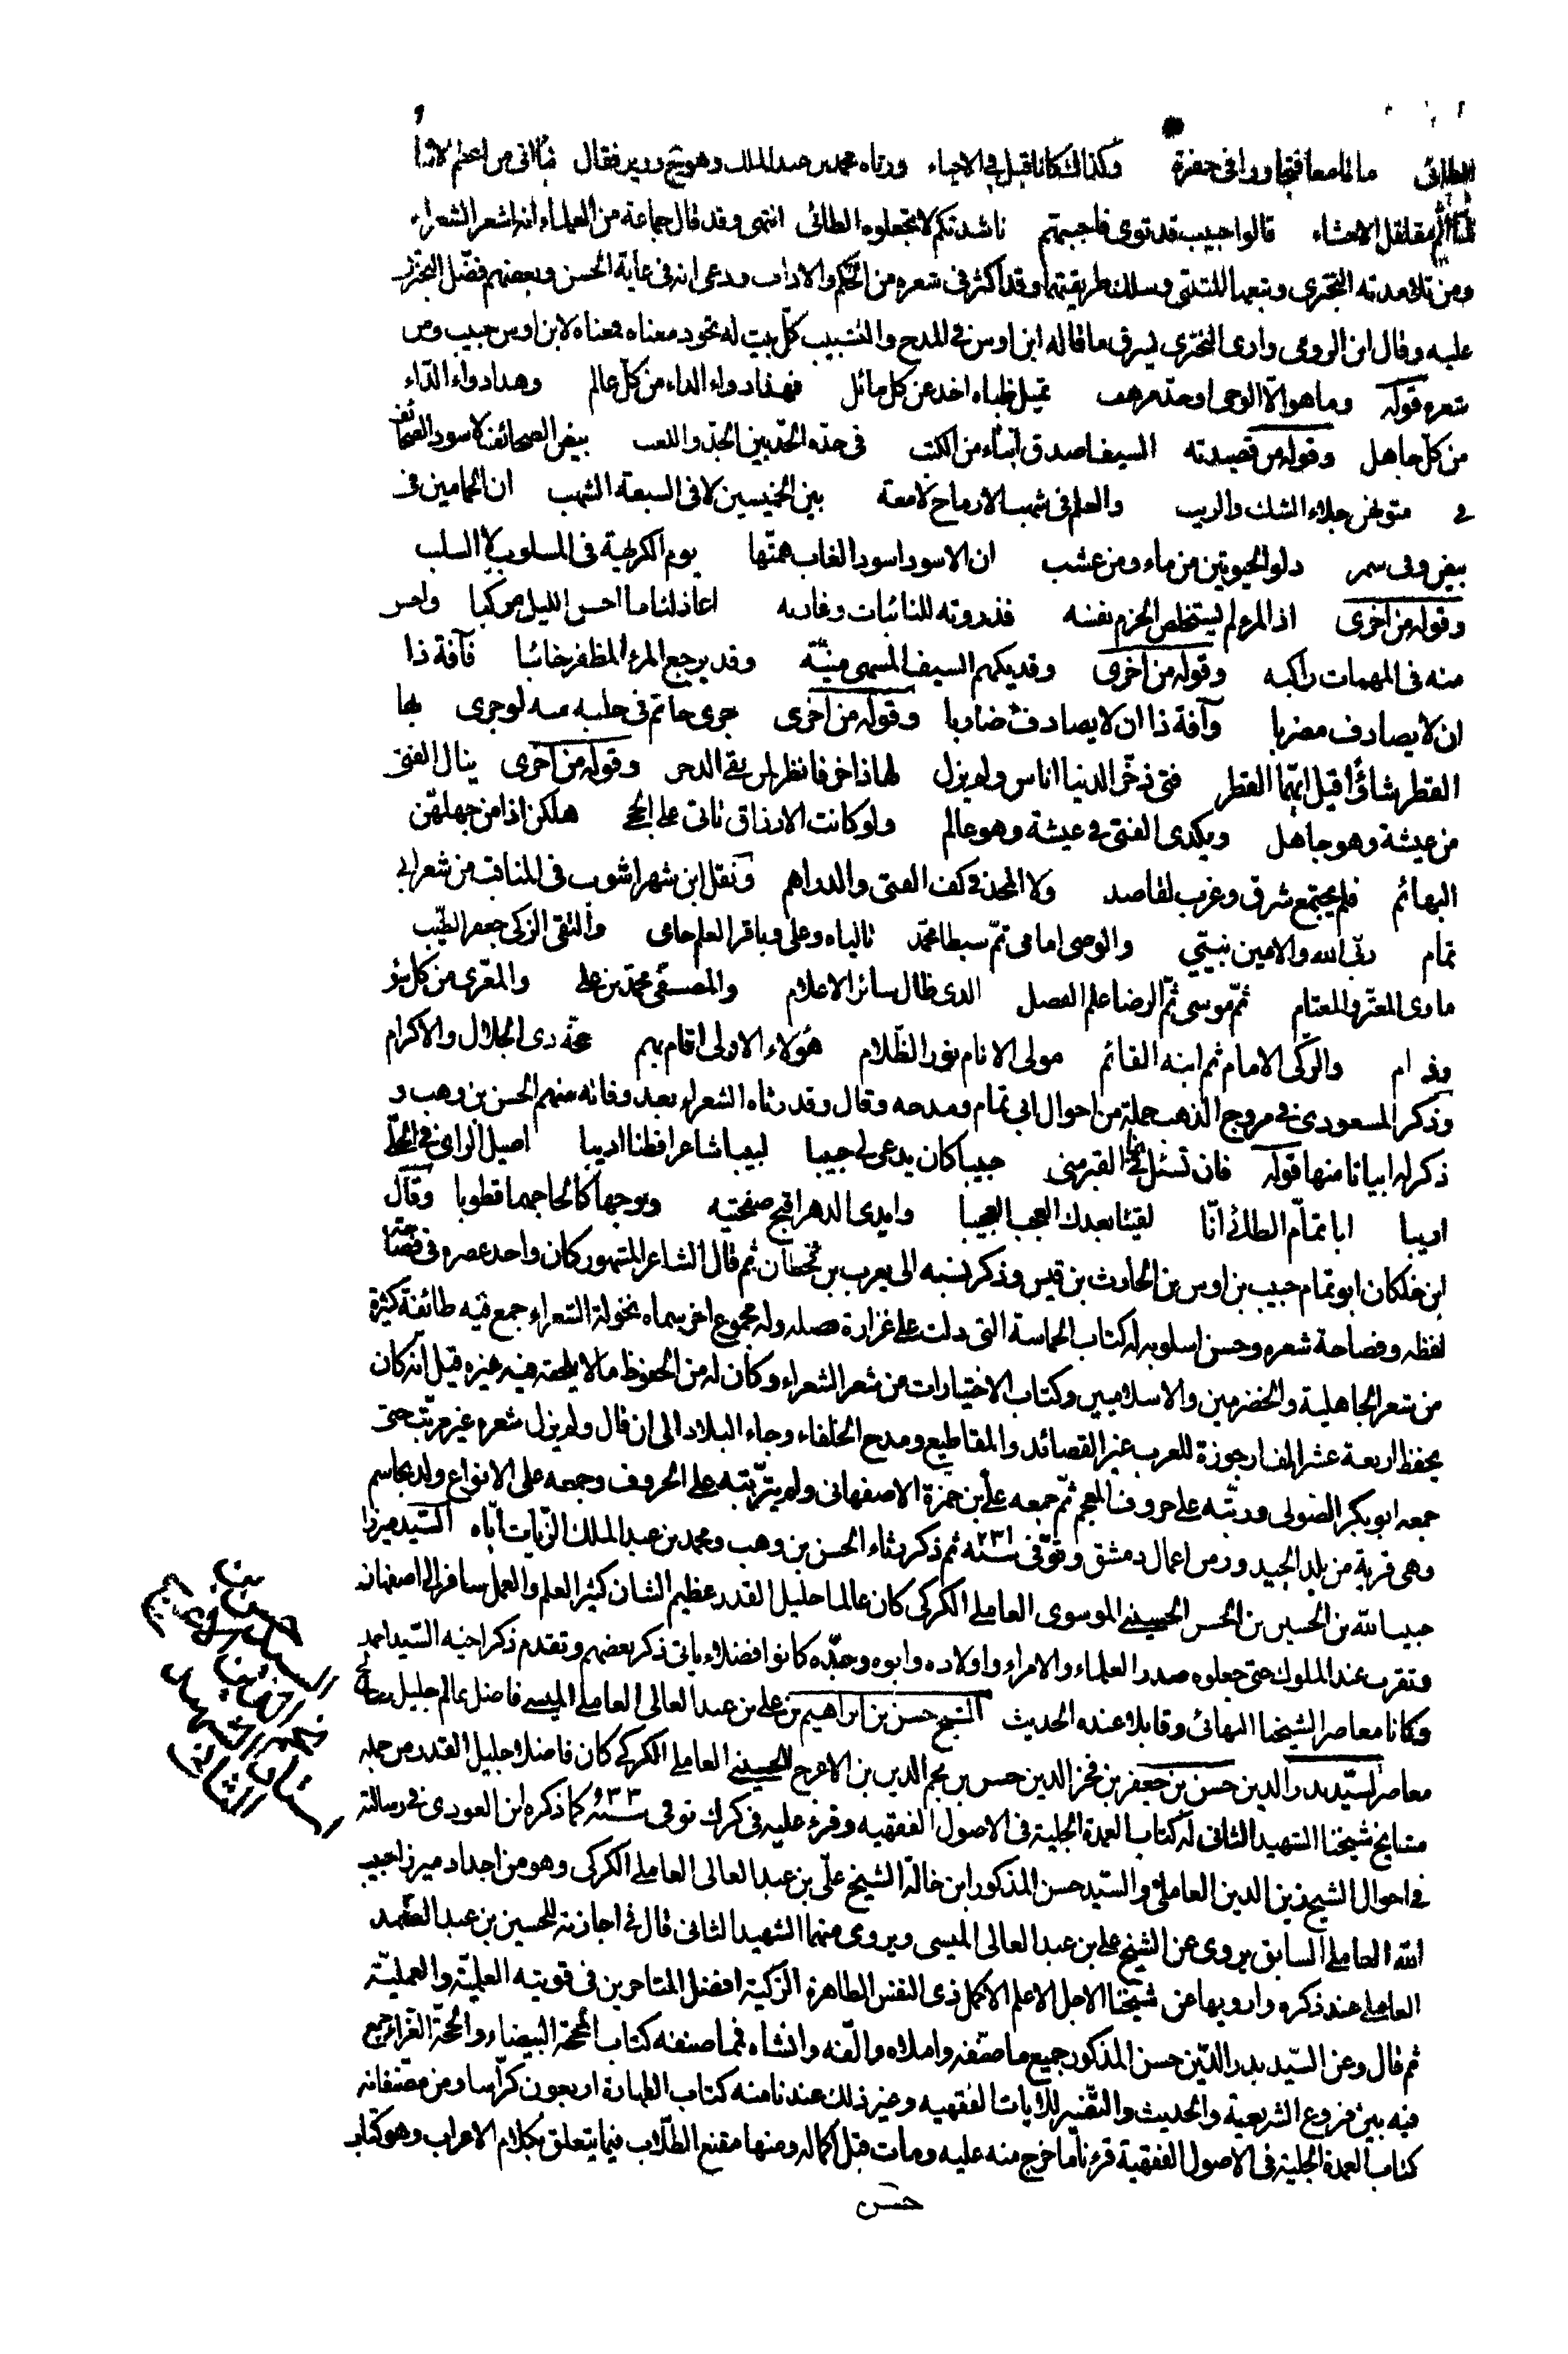 ٩
الطائى ماتا معا فتجاورا فى حفرة وكذاك كانا قبل فى الاحياء ورثاه محمد بن عبد الملك وهو يومئذ وزير فقال نبأ اتى من اعظم الانباء
لما الم مقلقل الاحشاء قالوا حبيب قد ثوى فاجبتهم ناشدتكم لا تجعلوه الطائى انتهى وقد قال جماعة من العلماء انه اشعر الشعراء
ومن تلامذته البحترى وتبعهما المتنبى وسلك طريقتهما وقد اكثر فى شعره من الحكم والاداب وديوانه فى غاية الحسن وبعضهم فضّل البحترى
عليه وقال ابن الرومى وارى البحترى يسرق ما قاله ابن اوس فى المدح والتشبيب كلّ بيت له تجود معناه فمعناه لابن اوس حبيب ومن
شعره قوله وما هو الّا الوحى اوحدّ مرهف تميل ظباه اخدعى كل مائل فهذا دواء الداء من كلّ عالم وهذا دواء الدّاء
من كلّ جاهل وقوله من قصيدته السيف اصدق انباء من الكتب فى حدّه الحدّ بين الجدّ واللعب بيض الصحائف لا سود الصحائف
فى متونهن جلاء الشك والريب والعلم فى شهب الارماح لامعة بين الخميسين لا فى السبعة الشهب ان الحمامين فى
بيض وفى سمر دلوا الحيوتين من ماء ومن عشب ان الاسود اسود الغاب همّتها يوم الكريهة فى المسلوب لا السلب
وقوله من اخرى اذا المرء لم يستخلص الحزم نفسه فذروته للنائبات وغاربه اعاذلتا ما اخسن الليل مركبا واخسن
منه فى المهمات راكبه وقوله من اخرى وقد يكهم السيف المسمى منيّة وقد يرجع المرء المظفر خائبا فآفة ذا
ان لا يصادف مضربا وآفة ذا ان لا يصادف ضاربا وقوله من اخرى جرى حاتم فى حلبة منه لو جرى بها
القطر شأوا قيل ايّهما القطر فتى ذخّر الدنيا اناس ولم يزل لها ذاخرا فانظر لمن بقى الذخر وقوله من اخرى ينال الفتى
من عيشة وهو جاهل ويكدى الفتى فى عيشة وهو عالم ولو كانت الارزاق تاتى على الحجى هلكن اذا من جهلهنّ
البهائم فلم يجتمع شرق وغرب لقاصد ولا المجد فى كف الفتى والدراهم ونقل ابن شهراشوب فى المناقب من شعر ابى
تمام ربّى الله والامين نبيّى والوصى امامى ثمّ سبطا محمّد تالياه وعلى وباقر العلم حامى والتقى الزكى جعفر الطيّب
ماوى المعترّ والمعتام ثمّ موسى ثمّ الرضا علم الفضل الذى طال سائر الاعلام والمصفى محمّد بن على والمعرّى من كل سوء
وذام والزكّى الامام ثم ابنه القائم مولى الانام نور الظّلام هؤلاء الاولى اقام بهم حجّة ذى الجلال والاكرام
وذكر المسعودى فى مروج الذهب جملة من احوال ابى تمام ومدحه وقال وقد رثاه الشعراء بعد وفاته منهم الحسن بن وهب و
ذكر له ابياتا منها قوله فان تسئل بما فى القبر منى حبيبا كان يدعى لى حبيبا لبيبا شاعرا فطنا اديبا اصيل الراى فى الجلّى
اديبا ابا تمّام الطائى انّا لقينا بعدك العجب العجيبا وابدى الدهر اقبح صفحتيه ووجها كالحا جهما قطوبا وقال
ابن خلكان ابو تمام حبيب بن اوس بن الحارث بن قيس وذكر نسبه الى يعرب بن قحطان ثم قال الشاعر المشهور كان واحد عصره فى فصاحته
لفظه وفصاحة شعره وحسن اسلوبه له كتاب الحماسة التى دلت على غزارة فضله وله مجموع اخر سماه فحولة الشعراء جمع فيه طائفة كثيرة
من شعر الجاهلية والمخضرمين والاسلاميين وكتاب الاختيارات من شعر الشعراء وكان له من الحفوظ ما لا يلحقه فيه غيره قيل انّه كان
يحفظ اربعة عشر الف ارجوزة للعرب غير القصائد والمقاطيع ومدح الخلفاء وجاء البلاد الى ان قال ولم يزل شعره غير مرتّب حتى
جمعه ابو بكر الصولى ورتّبه على حروف المعجم ثمّ جمعه على بن حمزة الاصفهانى ولم يرتّبه على الحروف وجمعه على الانواع ولد بجاسم
وهى قرية من بلد الجيدور من اعمال دمشق وتوفّى سنة ٢٣١ ثم ذكر رثاء الحسن بن وهب ومحمد بن عبد الملك الزيّات ايّاه السّيد ميرزا
حبيب الله بن الحسين بن الحسن الحسينى الموسوى العاملى الكركى كان عالما جليل القدر عظيم الشان كثير العلم والعمل سافر الى اصفهان
وتقرب عند الملوك حتى جعلوه صدر العلماء والامراء واولاده وابوه وجدّه كانوا فضلاء ياتى ذكر بعضهم وتقدم ذكر اخيه السّيد احمد
وكانا معاصر الشيخنا البهائى وقابلا عنده الحديث الشيخ حسن بن ابراهيم بن على بن عبد العالى العاملى الميسى فاضل عالم جليل
معاصر السّيد بدر الدين حسن بن جعفر بن فخر الدين حسن بن نجم الدين بن الاعرج الحسينى العاملى الكركى كان فاضلا جليل القدر من جملة
مشايخ شيخنا الشهيد الثانى له كتاب العمدة الجلية فى الاصول الفقهيه وقرء عليه فى كرك توفى سنة ٩٣٣ كما ذكره ابن العودى فى رسالته
فى احوال الشيخ زين الدين العاملى والسّيد حسن المذكور ابن خالة الشيخ علىّ بن عبد العالى العاملى الكركى وهو من اجداد ميرزا حبيب
الله العاملى السابق يروى عن الشيخ على بن عبد العالى الميسى ويروى منهما الشهيد الثانى قال فى اجازته للحسين بن عبد الصّمد
العاملى عند ذكره وارويها عن شيخنا الاجل الاعلم الاكمل ذى النفس الطاهرة الزكية افضل المتاخرين فى قوتيه العلميّة والعمليّة
ثم قال وعن السّيد بدر الدّين حسن المذكور جميع ما صنّفه واملاه والّفه وانشاه فمما صنفه كتاب المحجة البيضاء والحجّة الغراء جمع
فيه بين فروع الشريعية والحديث والتّفسير للايات الفقهيه وغير ذلك عندنا منه كتاب الطهارة اربعون كرّاسا ومن مصنّفاته
كتاب العمدة الجلية فى الاصول الفقهية قرءنا ما خرج منه عليه ومات قبل اكماله ومنها مقنع الطلّاب فيما يتعلق بكلام الاعراب وهو كتاب
حسن
حسن بن
السيد
جعفر
استاد الشهيد
الثانى